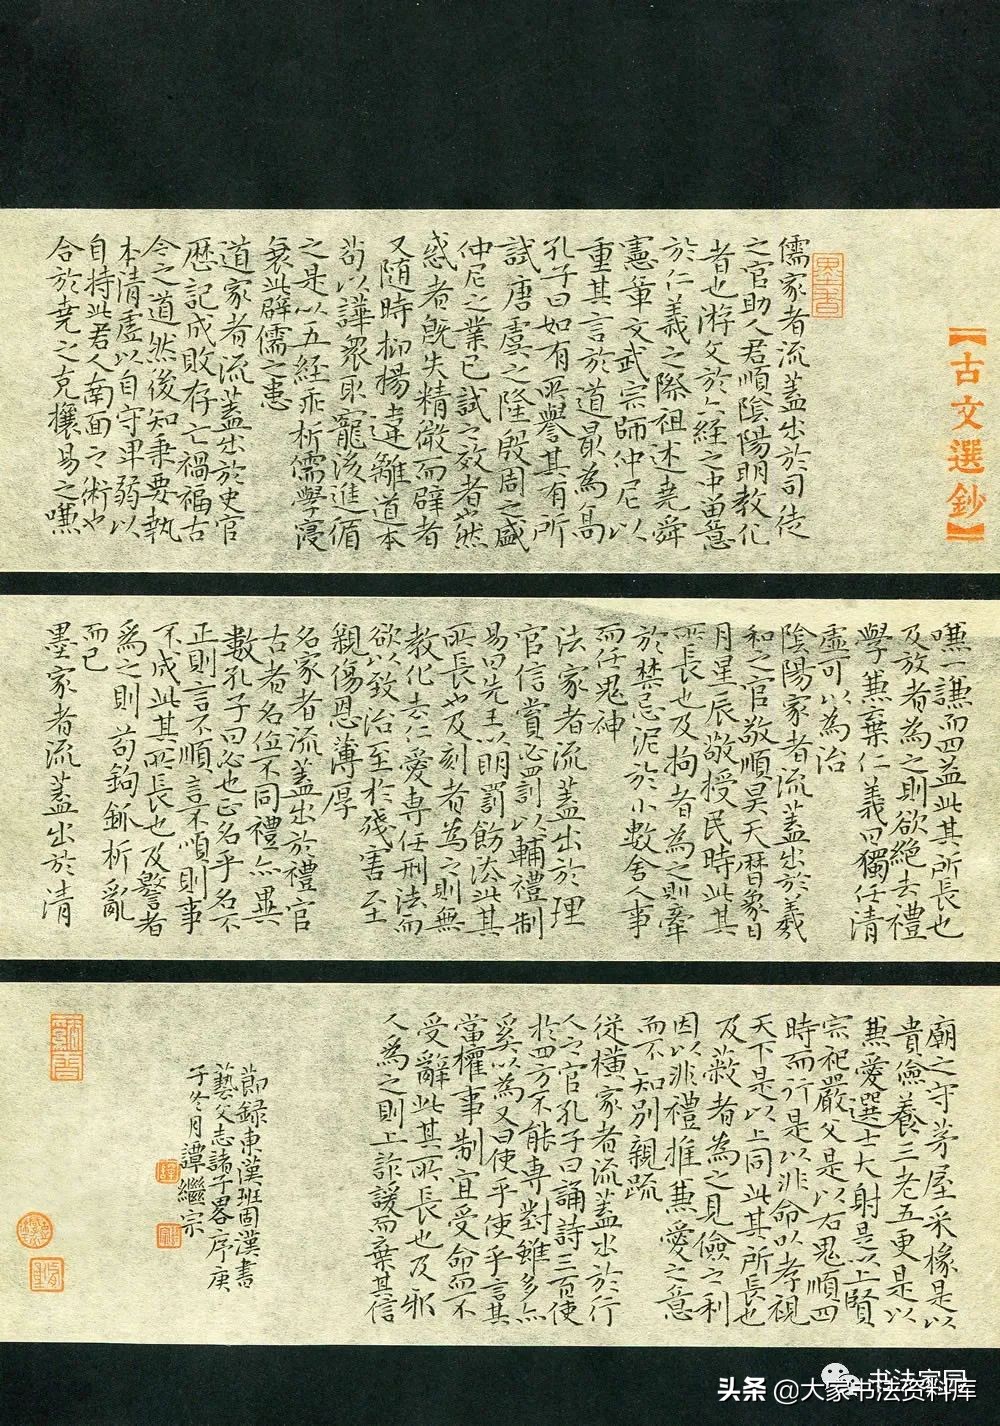 【古文選鈔】
儒家者流蓋出於司徒
之官助人君順陰陽明教化
者也游文於六經之中留意
於仁義之際祖述堯舜
憲章文武宗師仲尼以
重其言於道最為高
孔子曰如有所譽其有所
試唐虞之隆殷周之盛
仲尼之業已試之效者也然
惑者既失精微而辟者
又隨時抑揚違離道本
苟以譁眾取寵後進循
之是以五經乖析儒學寖
衰此辟儒之患
道家者流蓋出於史官
歷記成敗存亡禍福古
今之道然後知秉要執
本清虛以自守卑弱以
自持此君人南面之術也
合於堯之克攘易之嗛
嗛一謙而四益此其所長也
及放者為之則欲絕去禮
學兼棄仁義曰獨任清
虛可以為治
陰陽家者流蓋出於羲
和之官敬順昊天曆象日
月星辰敬授民時此其
所長也及拘者為之則牽
於禁忌泥於小數舍人事
而任鬼神
法家者流蓋出於理
官信賞必罰以輔禮制
易曰先王以明罰飭法此其
所長也及刻者為之則無
教化去仁愛專任刑法而
欲以致治至於殘害至
親傷恩薄厚
名家者流蓋出於禮官
古者名位不同禮亦異
數孔子曰必也正名乎名不
正則言不順言不順則事
不成此其所長也及警者
為之則苟鉤鈲析亂
而已
墨家者流蓋出於清
廟之守茅屋采椽是以
貴儉養三老五更是以
兼愛選士大射是以上賢
宗祀嚴父是以右鬼順四
時而行是以非命以孝視
天下是以上同此其所長也
及蔽者為之見儉之利
因以非禮推兼愛之意
而不知別親疏
從橫家者流蓋出於行
人之官孔子曰誦詩三百使
於四方不能專對雖多亦
奚以為又曰使乎使乎言其
當權事制宜受命而不
受辭此其所長也及邪
人為之則上詐諼而棄其信
節錄東漢班固漢書
藝文志諸子畧序庚
子冬月譚繼宗
书法家园
头条 @大家书法资料库